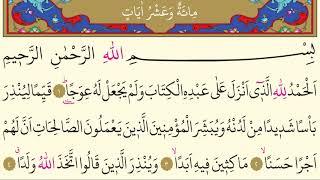 مِائَةٌ وَعَشْرُ اٰيَاتٍ
بِسْمِ اللهِ الرَّحْمٰنِ الرَّحِيمِ
اَلْحَمْدُ لِلّٰهِ الَّذ۪ٓي اَنْزَلَ عَلٰى عَبْدِهِ الْكِتَابَ وَلَمْ يَجْعَلْ لَهُ عِوَجًاۜ ﴿١﴾ قَيِّمًا لِيُنْذِرَ
بَأْسًا شَد۪يدًا مِنْ لَدُنْهُ وَيُبَشِّرَ الْمُؤْمِن۪ينَ الَّذ۪ينَ يَعْمَلُونَ الصَّالِحَاتِ اَنَّ لَهُمْ
اَجْرًا حَسَنًاۙ ﴿٢﴾ مَاكِث۪ينَ ف۪يهِ اَبَدًاۙ ﴿٣﴾ وَيُنْذِرَ الَّذ۪ينَ قَالُوا اتَّخَذَ اللهُ وَلَدًاۗ ﴿٤﴾